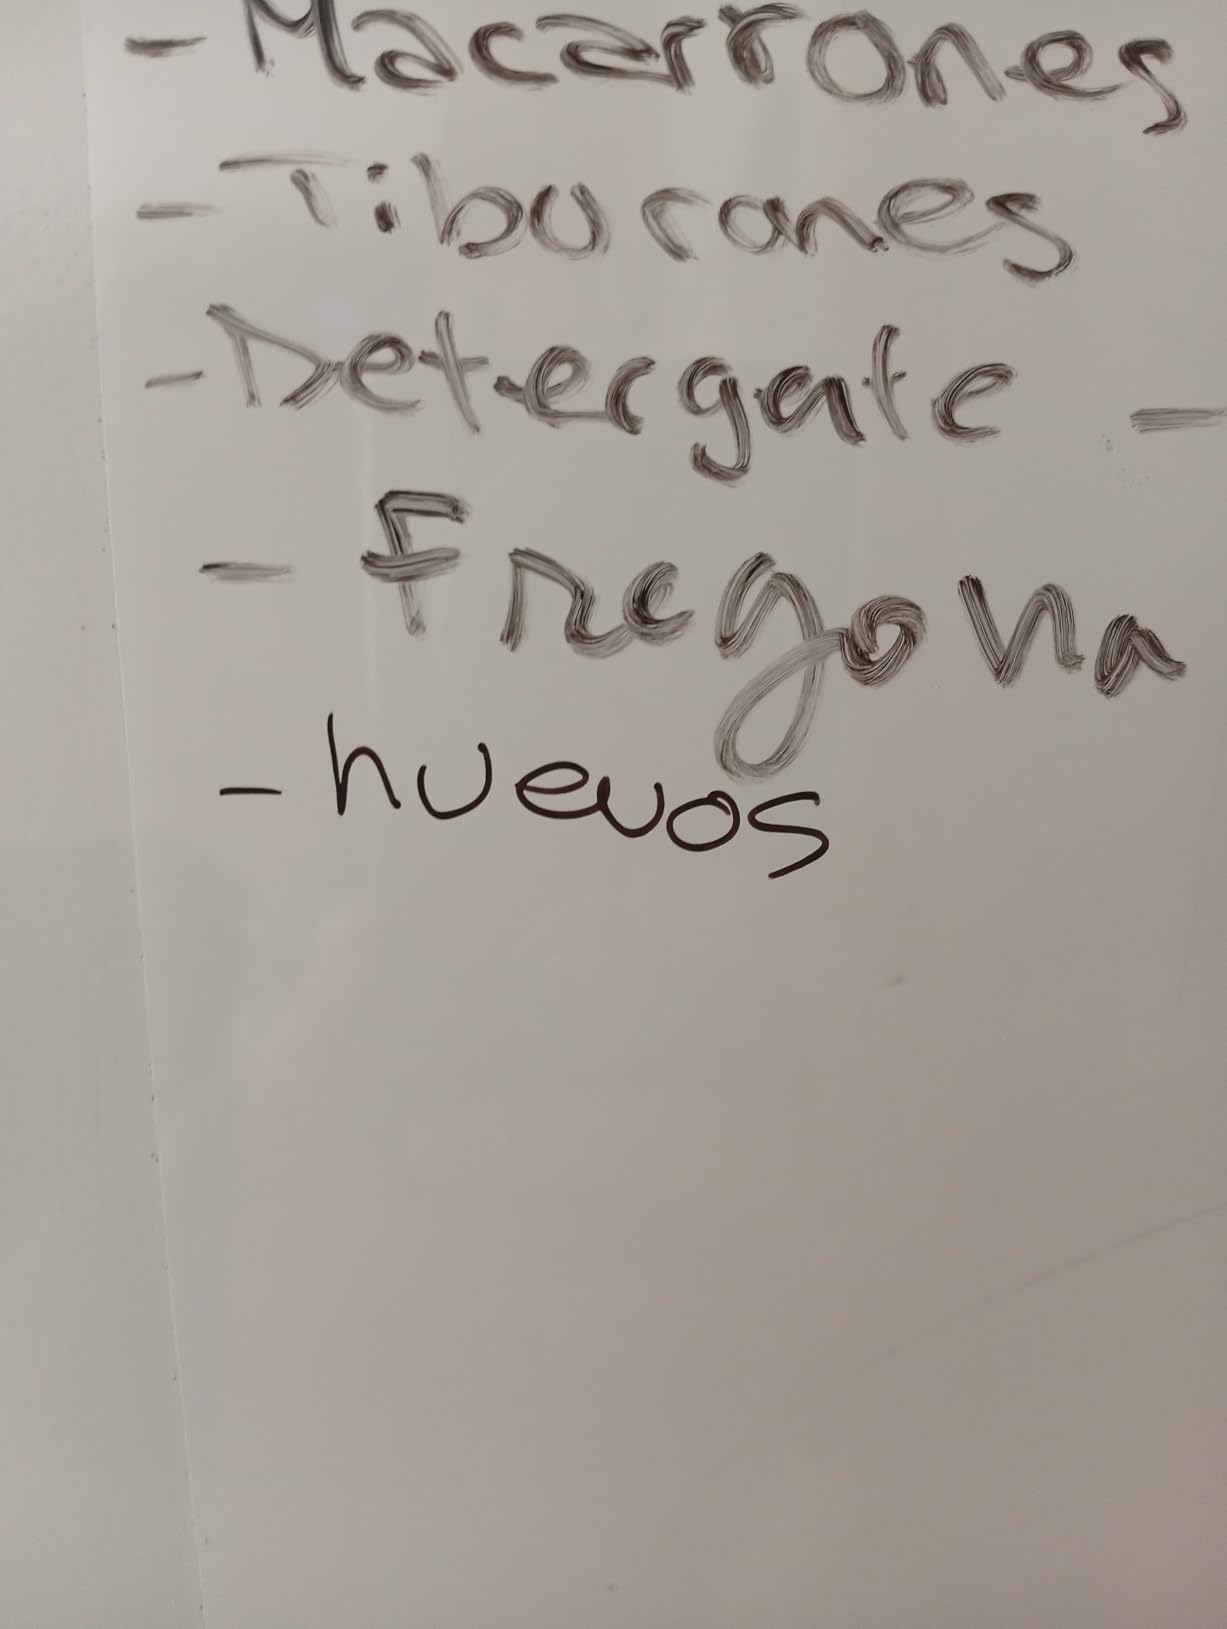 - Macarrones
- Tiburones
- Detergate -
- Fregona
- huevos